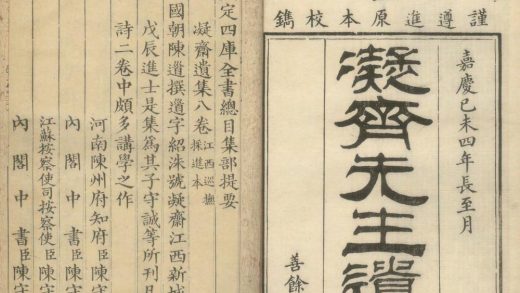 謹遵進原本校鐫
嘉慶己未四年長至月
凝齊先生遺
善餘
定四庫全書總目集部提要
凝齋遺集八卷江西巡撫採進本
國朝陳道撰道字紹洙號凝齋江西新城
戊辰進士是集為其子守誠等所刊凡
詩二卷中頗多講學之作
河南陳州府知府臣陳守
內閣中書臣陳守
江蘇按察使司按察使臣陳守
內閣中書臣陳守